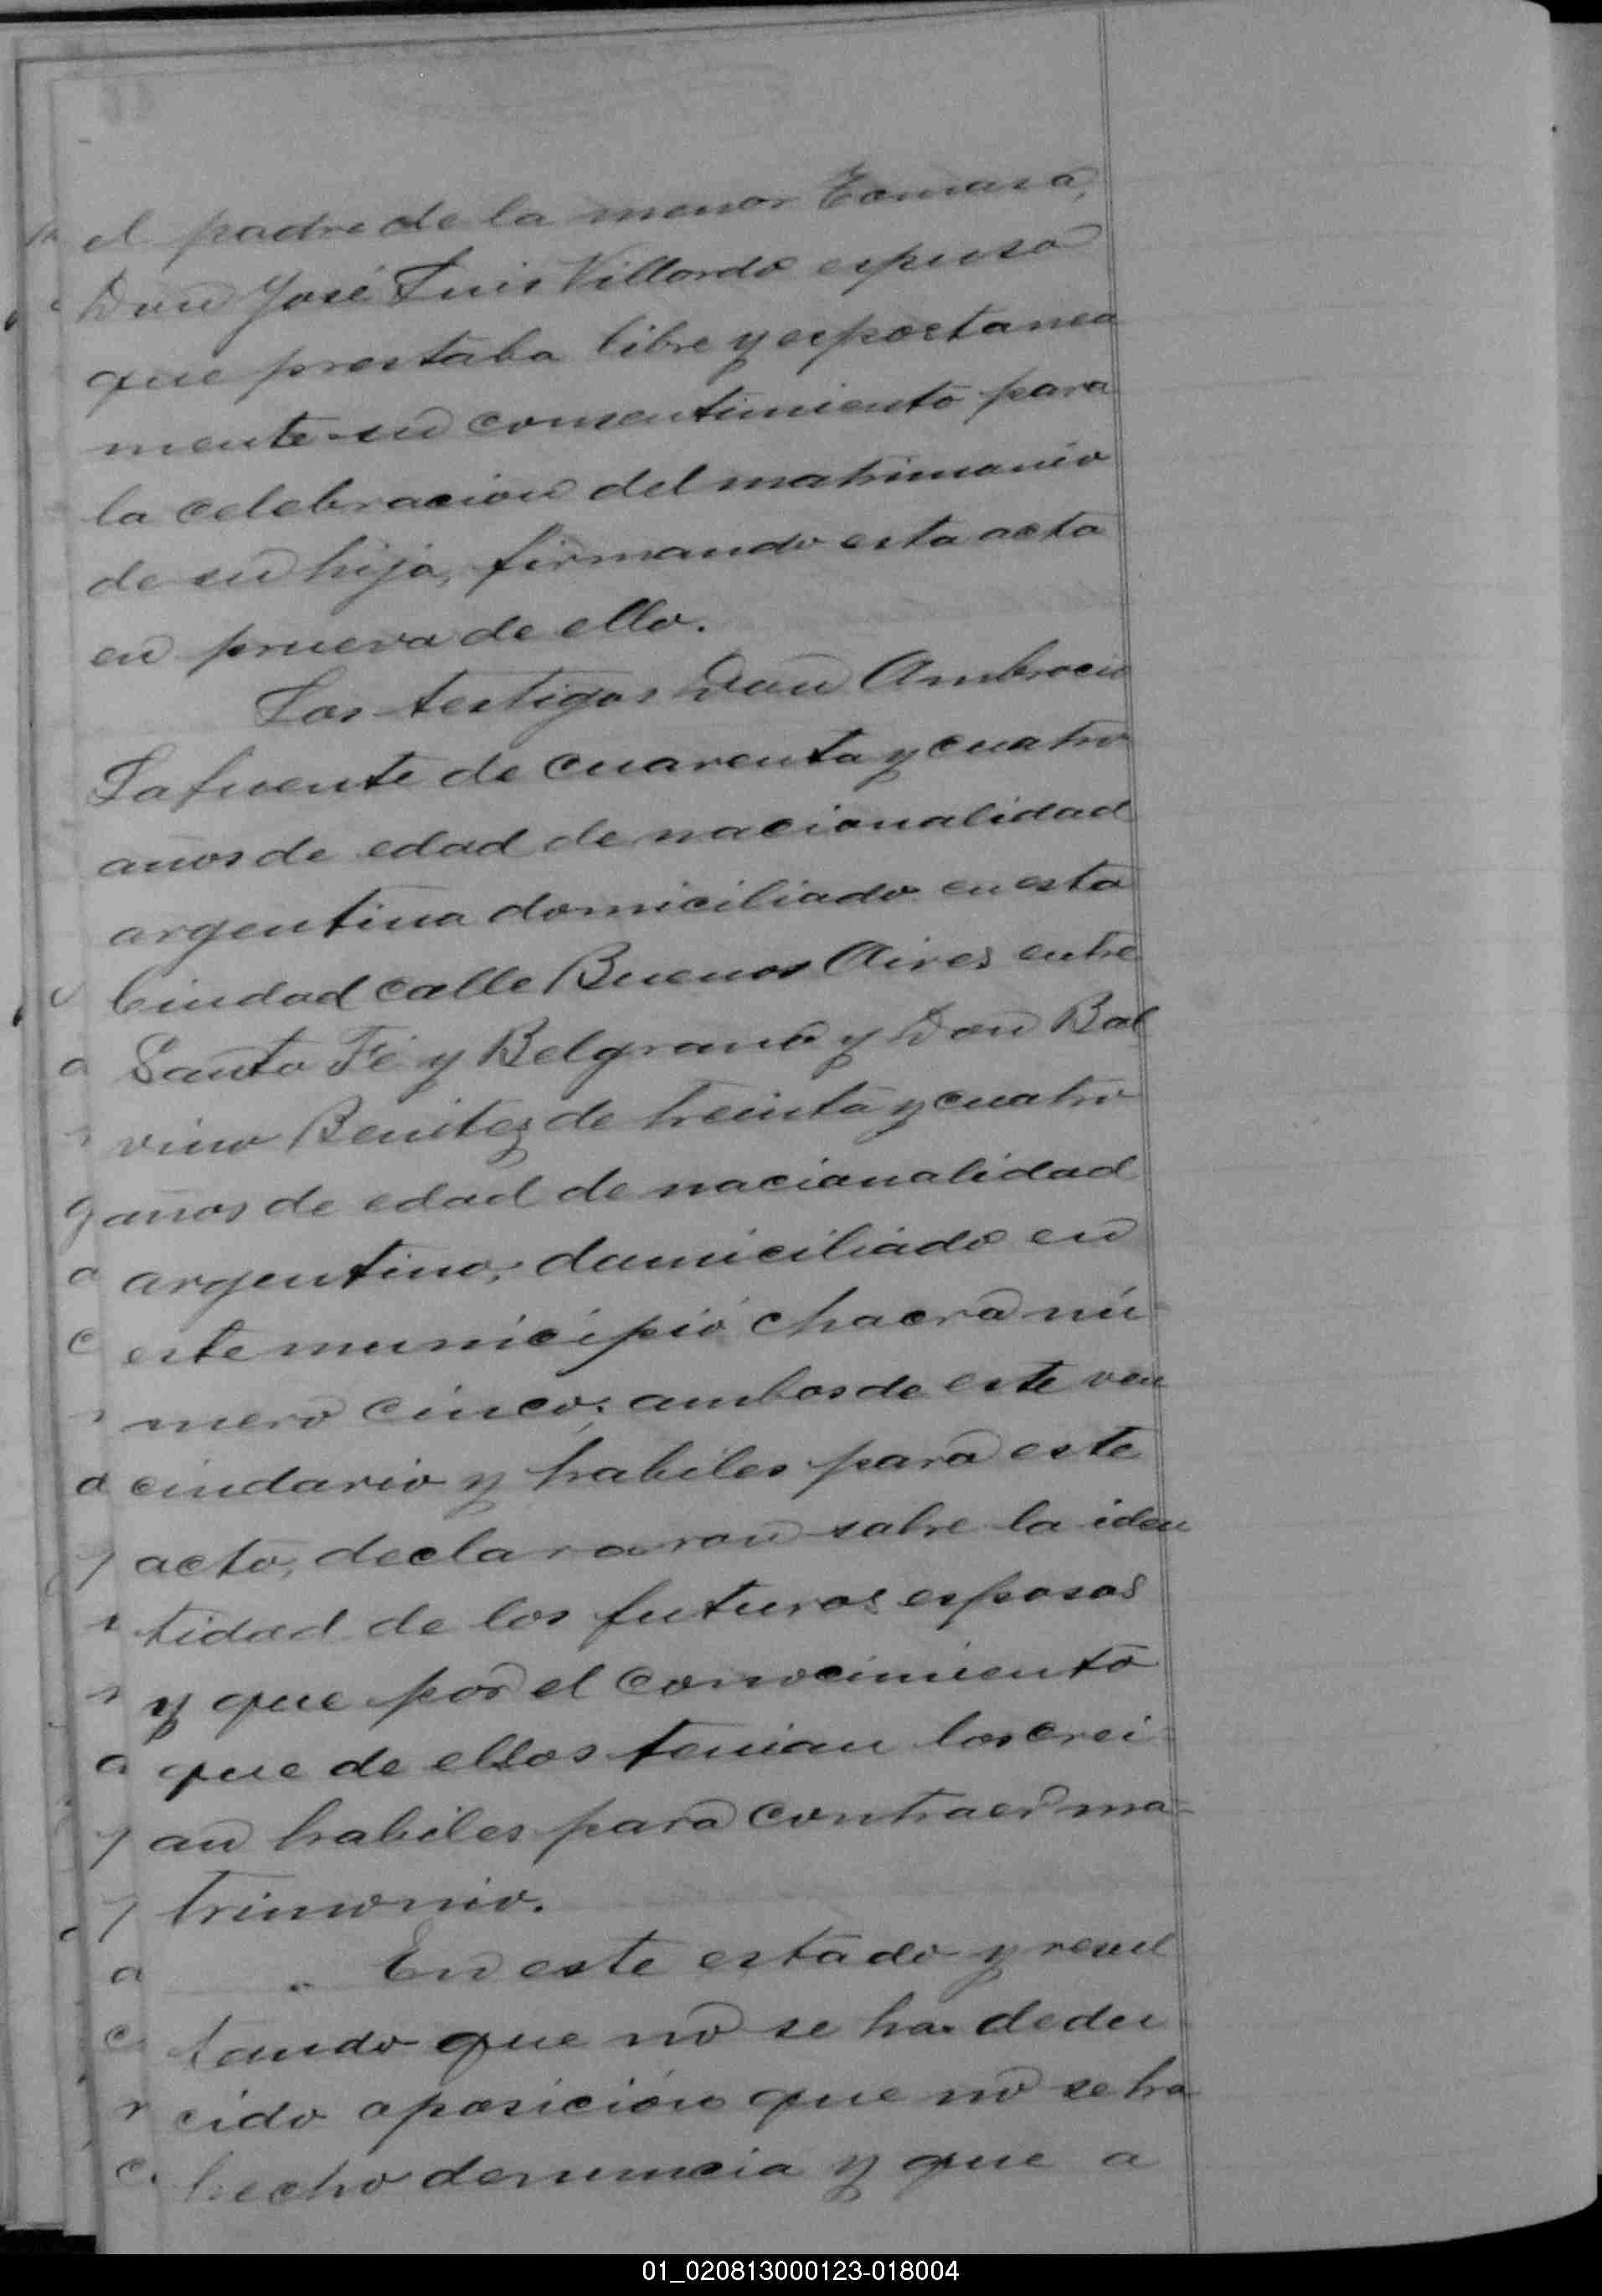 el padre de la menor Tomasa,
Don José Luis Villordo espuso
que prestaba libre y espoctanea
mente su consentimiento para
la celebracion del matrimonio
de su hija, firmando esta acta
en prueva de ello.
Los testigos Don Ambrocio
Lafuente de cuarenta y cuatro
años de edad de nacionalidad
argentina domiciliado en esta
Ciudad calle Buenos Aires entre
Santa Fé y Belgrano y Don Bal
vino Benitez de treinta y cuatro
años de edad de nacionalidad
argentino, domiciliado en
este municipio chacra nú-
mero cinco; ambos de este ven
cindario y habiles para este
acto, declararon sobre la iden
tidad de los futuros esposos
y que por el conocimiento
que de ellos tenian los crei-
an habiles para contraer ma-
trimonio.
En este estado y resul
tando que no se ha dedu
cido oposición que no se ha
hecho denuncia y que a
01_020813000123-018004